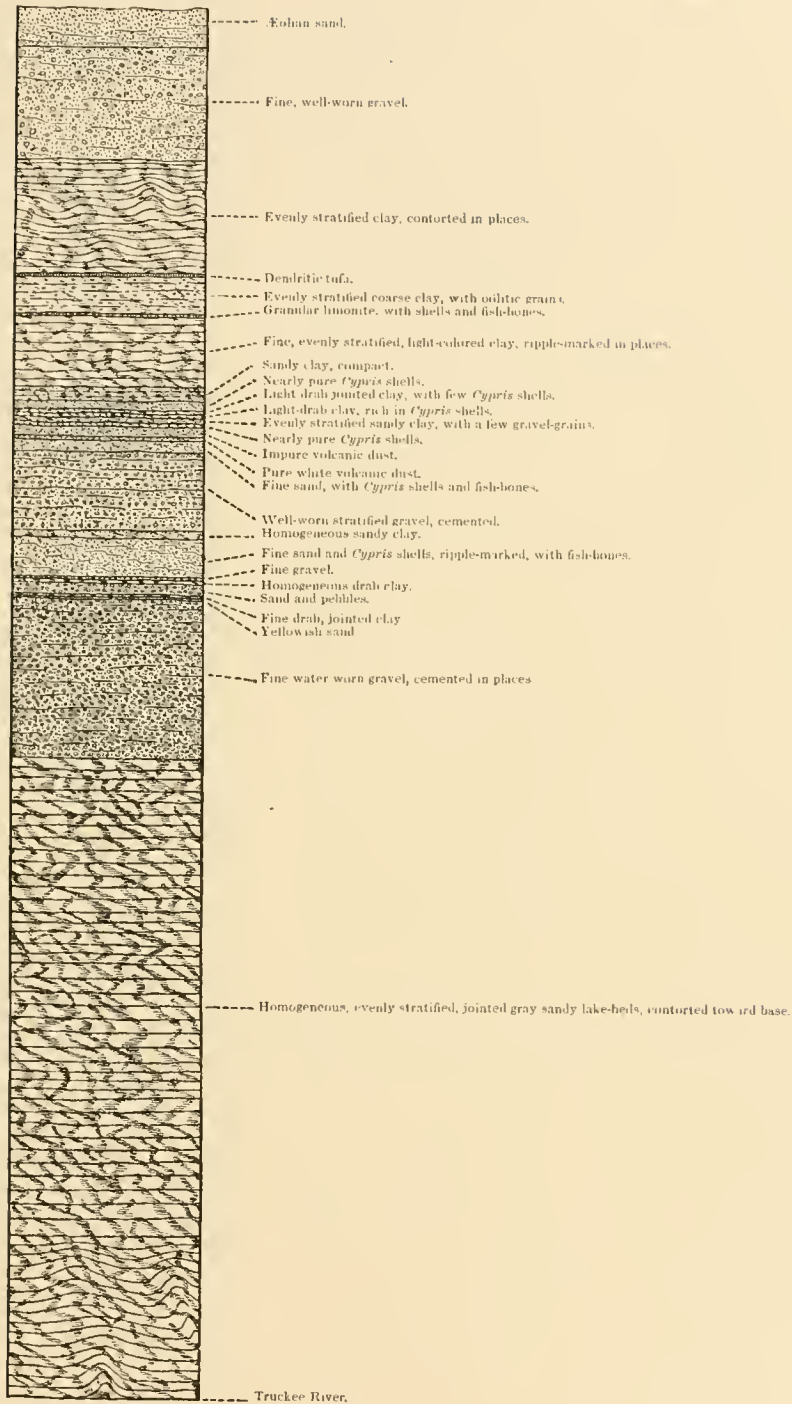 Æolian sand.
Fine, well-worn gravel.
Evenly stratified clay, contorted in places.
Dendritic tufa.
Evenly stratified coarse clay, with oölitic grains.
Granular limonite, with shells and fish-bones.
Fine, evenly stratified, light-colored clay, ripple-marked in places.
Sandy clay, compact.
Nearly pure Cypris shells.
Light drab jointed clay, with few Cypris shells.
Light-drab clay, rich in Cypris shells.
Evenly stratified sandy clay, with a few gravel-grains.
Nearly pure Cypris shells.
Impure volcanic dust.
Pure white volcanic dust.
Fine sand, with Cypris shells and fish-bones.
Well-worn stratified gravel, cemented.
Homogeneous sandy clay.
Fine sand and Cypris shells, ripple-marked, with fish-bones.
Fine gravel.
Homogeneous drab clay.
Sand and pebbles.
Fine drab, jointed clay
Yellowish sand
Fine water worn gravel, cemented in places
Homogeneous, evenly stratified, jointed gray sandy lake-beds, contorted toward base.
Truckee River.